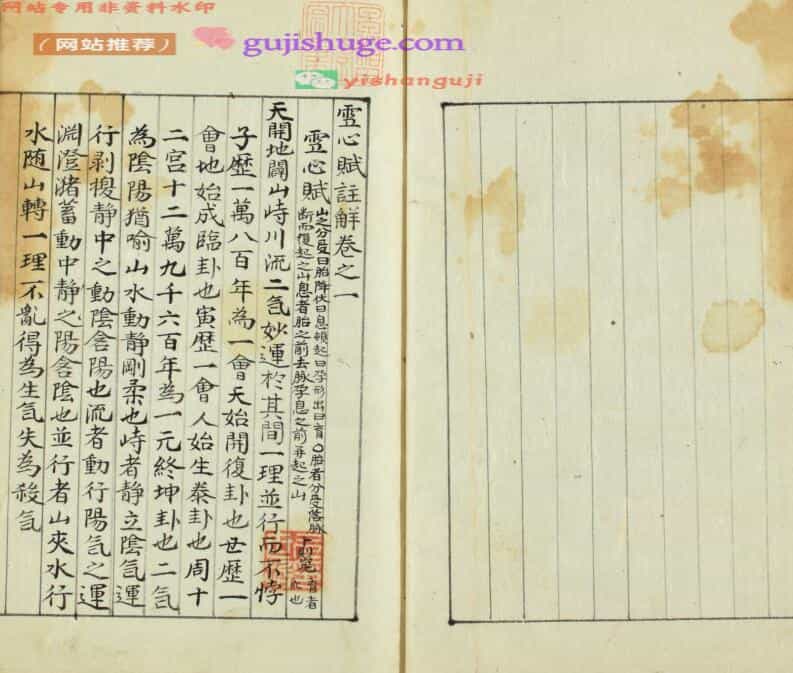 网站专用非资料水印
(网站推荐)
gujishuge.com
yishanguji
雪心賦註解卷之一
雪心賦
山之分受曰胎降伏曰息頓起曰孕形出曰育○胎者分受落脉
断而復起之山息者胎之前去脉孕息之前再起之山
育者
穴也
天開地闢山峙川流二氣妙運於其間一理並行而不悖
子歷一萬八百年為一會天始開復卦也丑歷一
會地始成臨卦也寅歷一會人始生泰卦也周十
二宮十二萬九千六百年為一元終坤卦也二氣
為陰陽猶喻山水動靜剛柔也峙者靜立陰氣運
行剥換静中之動陰含陽也流者動行陽氣之運
淵澄瀦蓄動中静之陽含陰也並行者山夾水行
水随山轉一理不亂得為生氣失為殺氣